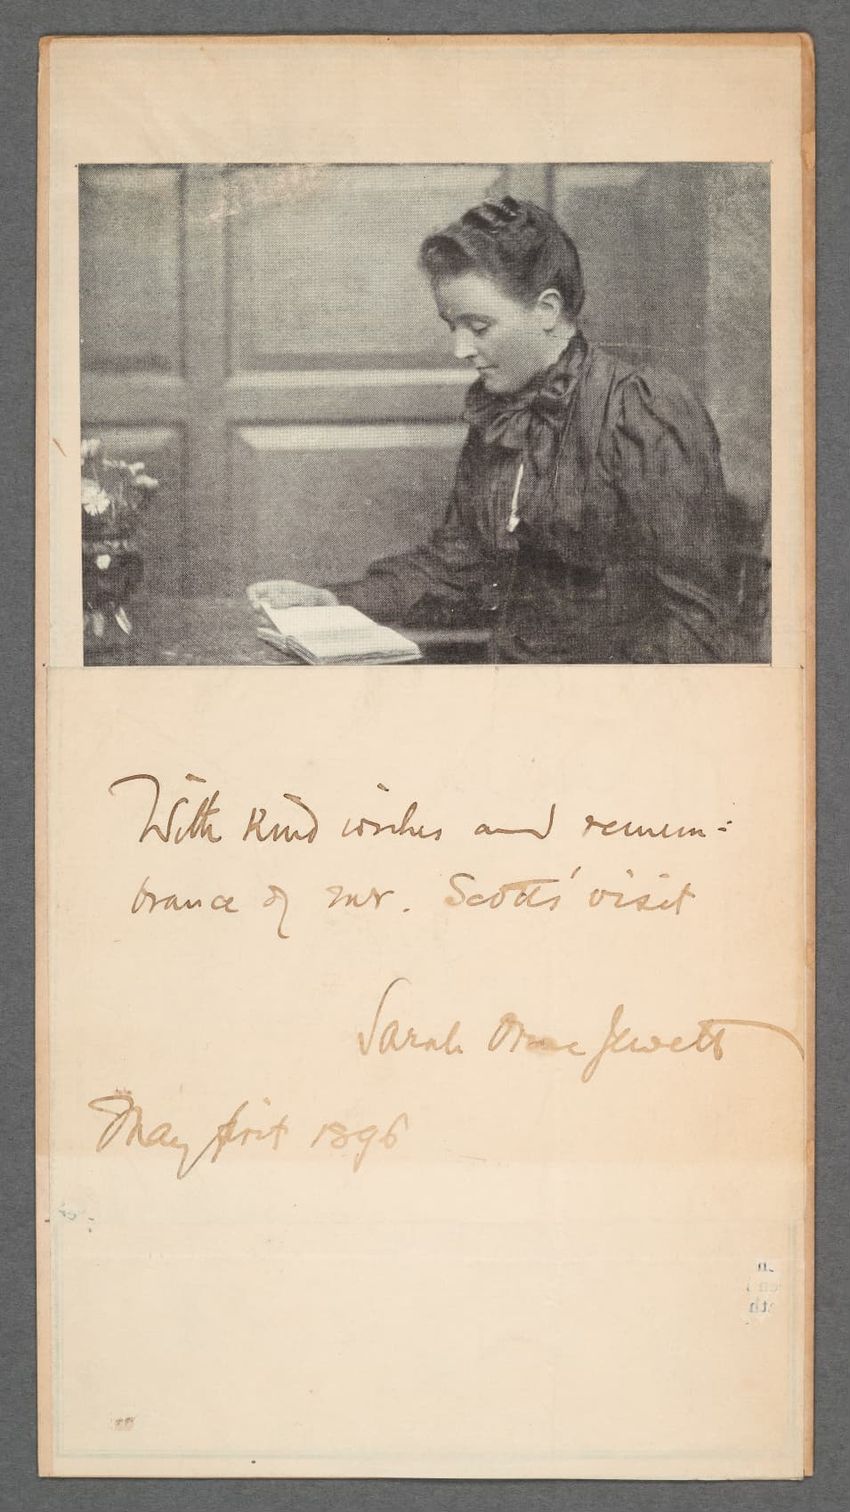 With kind wishes and remem-
brance of Mr. Scott's visit
Sarah Orne Jewett
May first 1896